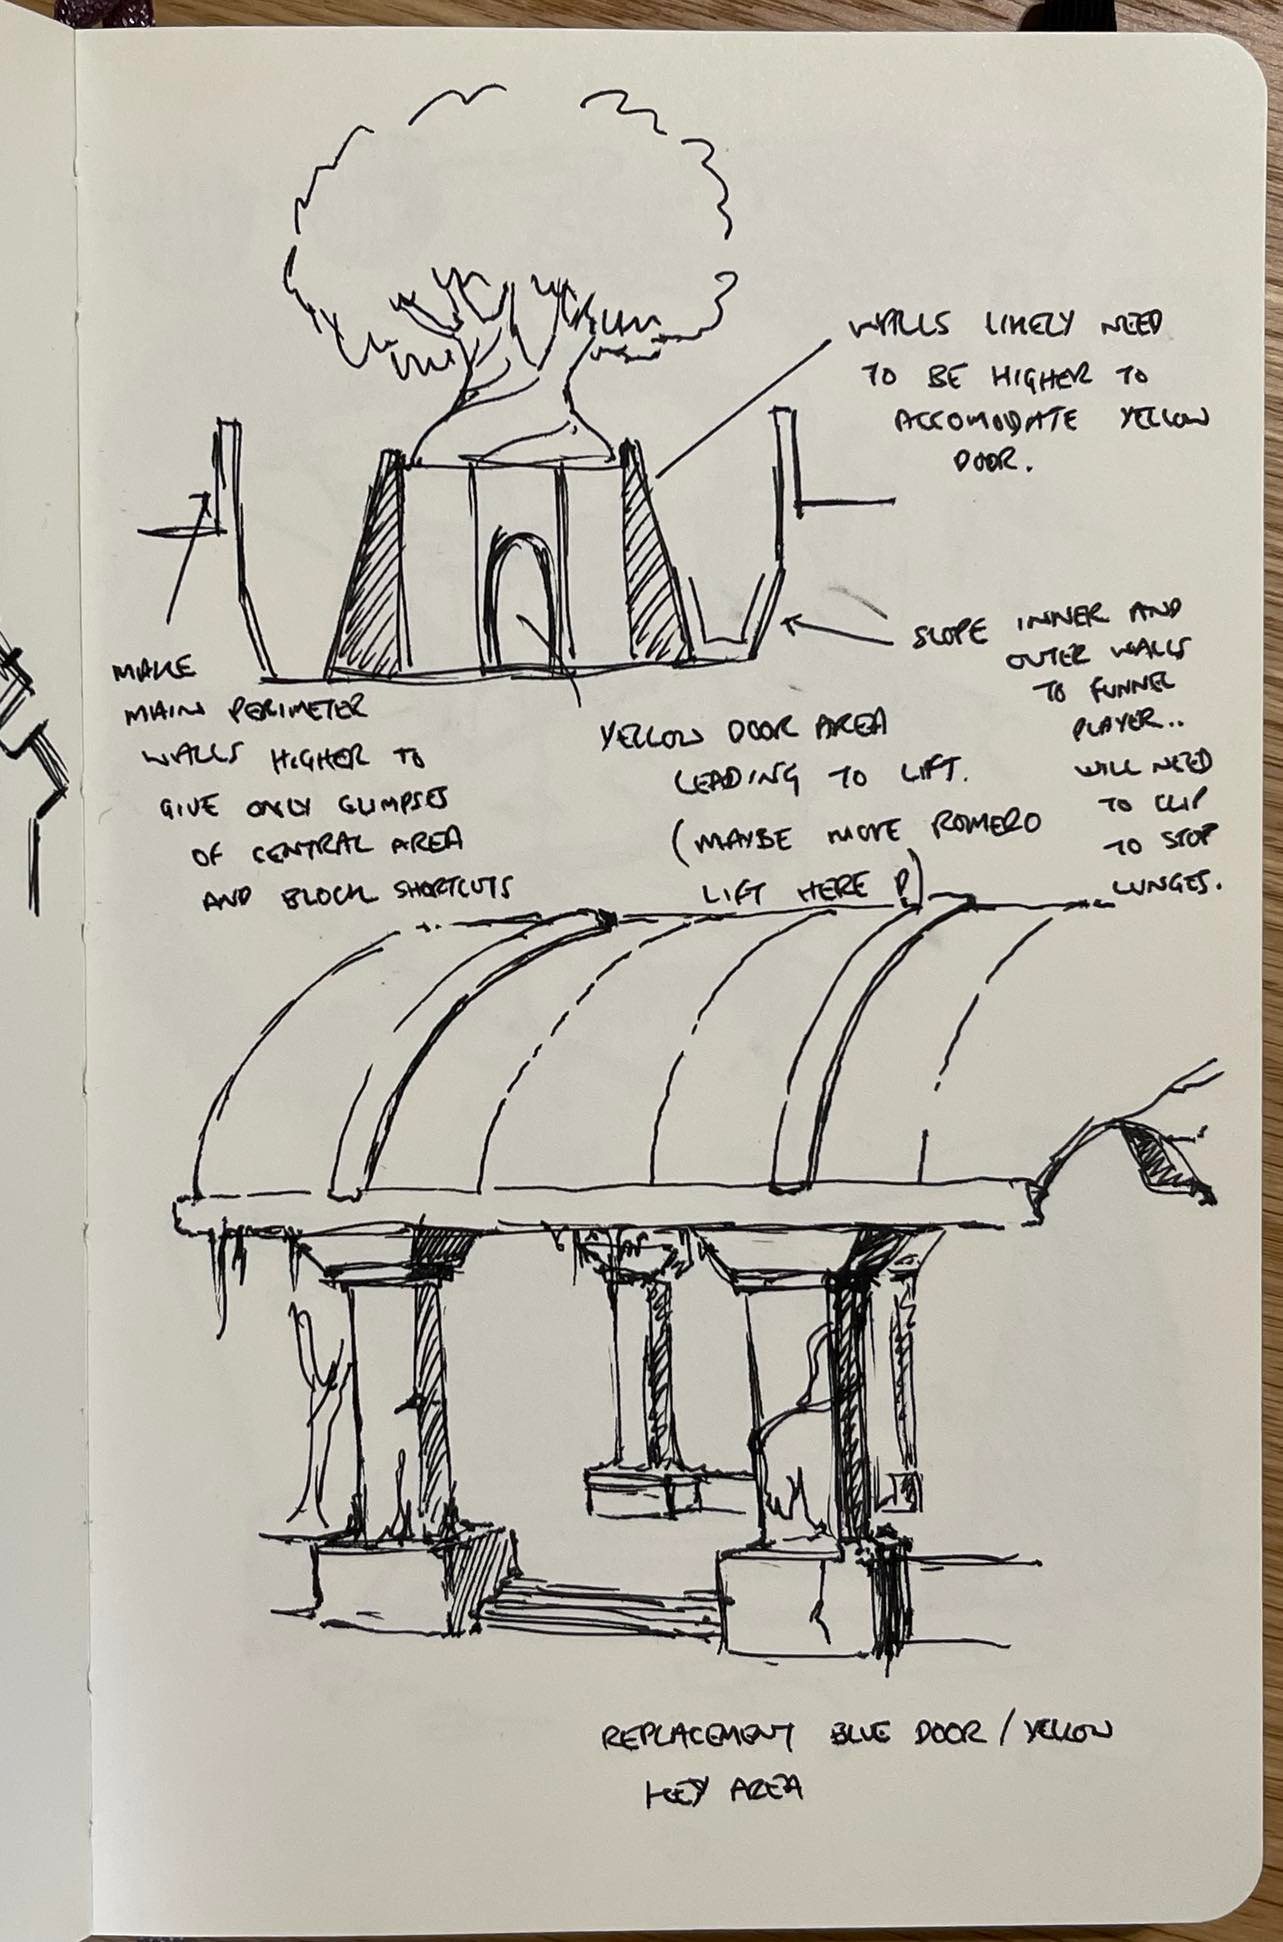 WALLS LIKELY NEED
TO BE HIGHER TO
ACCOMODATE YELLOW
DOOR.
SLOPE INNER AND
OUTER WALLS
TO FUNNEL
PLAYER..
WILL NEED
TO CLIP
TO STOP
LUNGES.
MAKE
MAIN PERIMETER
WALLS HIGHER TO
GIVE ONLY GLIMPSES
OF CENTRAL AREA
AND BLOCK SHORTCUTS
YELLOW DOOR AREA
LEADING TO LIFT.
(MAYBE MOVE ROMERO
LIFT HERE?)
REPLACEMENT BLUE DOOR / YELLOW
KEY AREA